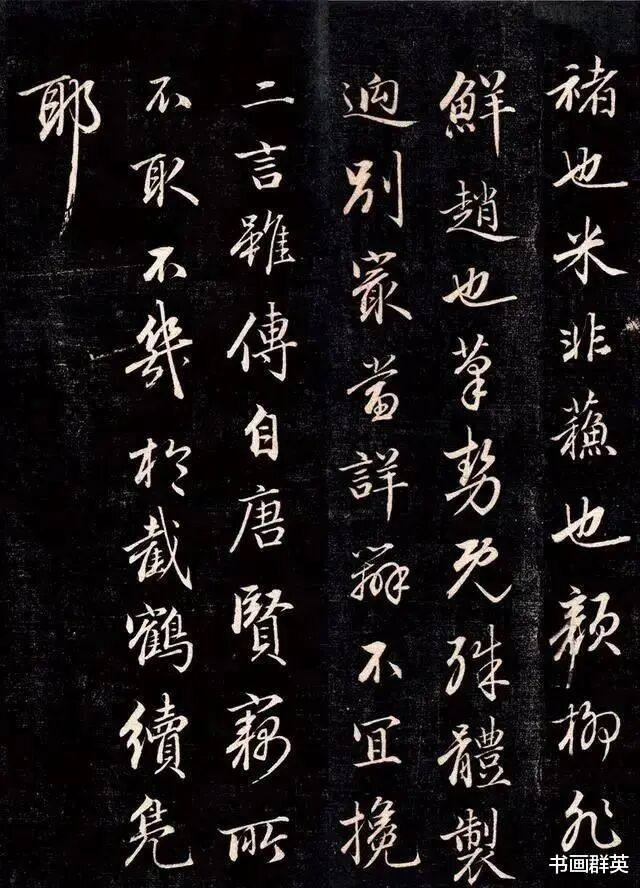 褚也米非蘓也顏柳非
鮮趙也筆勢既殊體製
逈別最當詳辨不宜攙
二言雖傳自唐賢竊所
不取不幾於截鶴續鳧
耶
书画群英